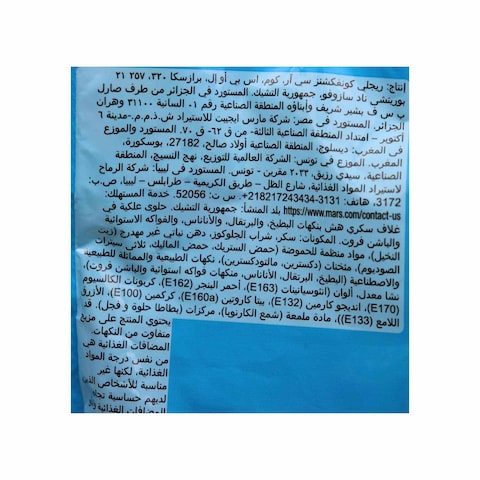 إنتاج: ريجلي كونفكشنز سي آر، كوم، اس بي أو إل، برازسكا ٣٢٠، ٢٥٧ ٢١
بوريتشي ناد سازوفو، جمهورية التشيك. المستورد في الجزائر من طرف صارل
ب س ف بشير شريف وأبناؤه المنطقة الصناعية رقم ٠١ السانية ٣١١٠٠ وهران
الجزائر. المستورد في مصر: شركة مارس ايجيبت للاستيراد ش.ذ.م.م.-مدينة ٦
أكتوبر – امتداد المنطقة الصناعية الثالثة- من ق٦٢- ق٧٠. المستورد والموزع
في المغرب: ديسلوج، المنطقة الصناعية أولاد صالح، 27182، بوسكورة،
المغرب. الموزع في تونس: الشركة العالمية للتوزيع، نهج النسيج، المنطقة
الصناعية، سيدي رزيق، ٢٠٣٣ مقرين - تونس. المستورد في ليبيا: شركة الرماح
لاستيراد المواد الغذائية، شارع الظل – طريق الكريمية – طرابلس – ليبيا، ص.ب:
3172، هاتف: 3131-218217243434+ س ت: 52056. خدمة المستهلك:
https://www.mars.com/contact-us بلد المنشأ: جمهورية التشيك. حلوى علكية في
غلاف سكري هش بنكهات البطيخ، والبرتقال، والأناناس، والفواكه الاستوائية
والباشن فروت. المكونات: سكر، شراب الجلوكوز، دهن نباتي غير مهدرج (زيت
النخيل)، مواد منظمة للحموضة (حمض الستريك، حمض الماليك، ثلاثي سيترات
الصوديوم)، مثخنات (دكسترين، مالتودكسترين)، نكهات الطبيعية والمماثلة للطبيعية
والاصطناعية (البطيخ، البرتقال، الأناناس، منكهات فواكه استوائية والباشن فروت)،
نشا معدل، ألوان (أنثوسيانينات (E163)، أحمر البنجر (E162)، كربونات الكالسيوم
(E170)، انديجو كارمين (E132)، بيتا كاروتين (E160a)، كركمين (E100)، الأزرق
اللامع (E133))، مادة ملمعة (شمع الكارنوبا)، مركزات (بطاطا حلوة و فجل). قد
يحتوي المنتج على مزيج
متفاوت من النكهات.
المضافات الغذائية هي
من نفس درجة المواد
الغذائية، لكنها غير
مناسبة للأشخاص الذين
لديهم حساسية تجاه
المضافات الغذائية و